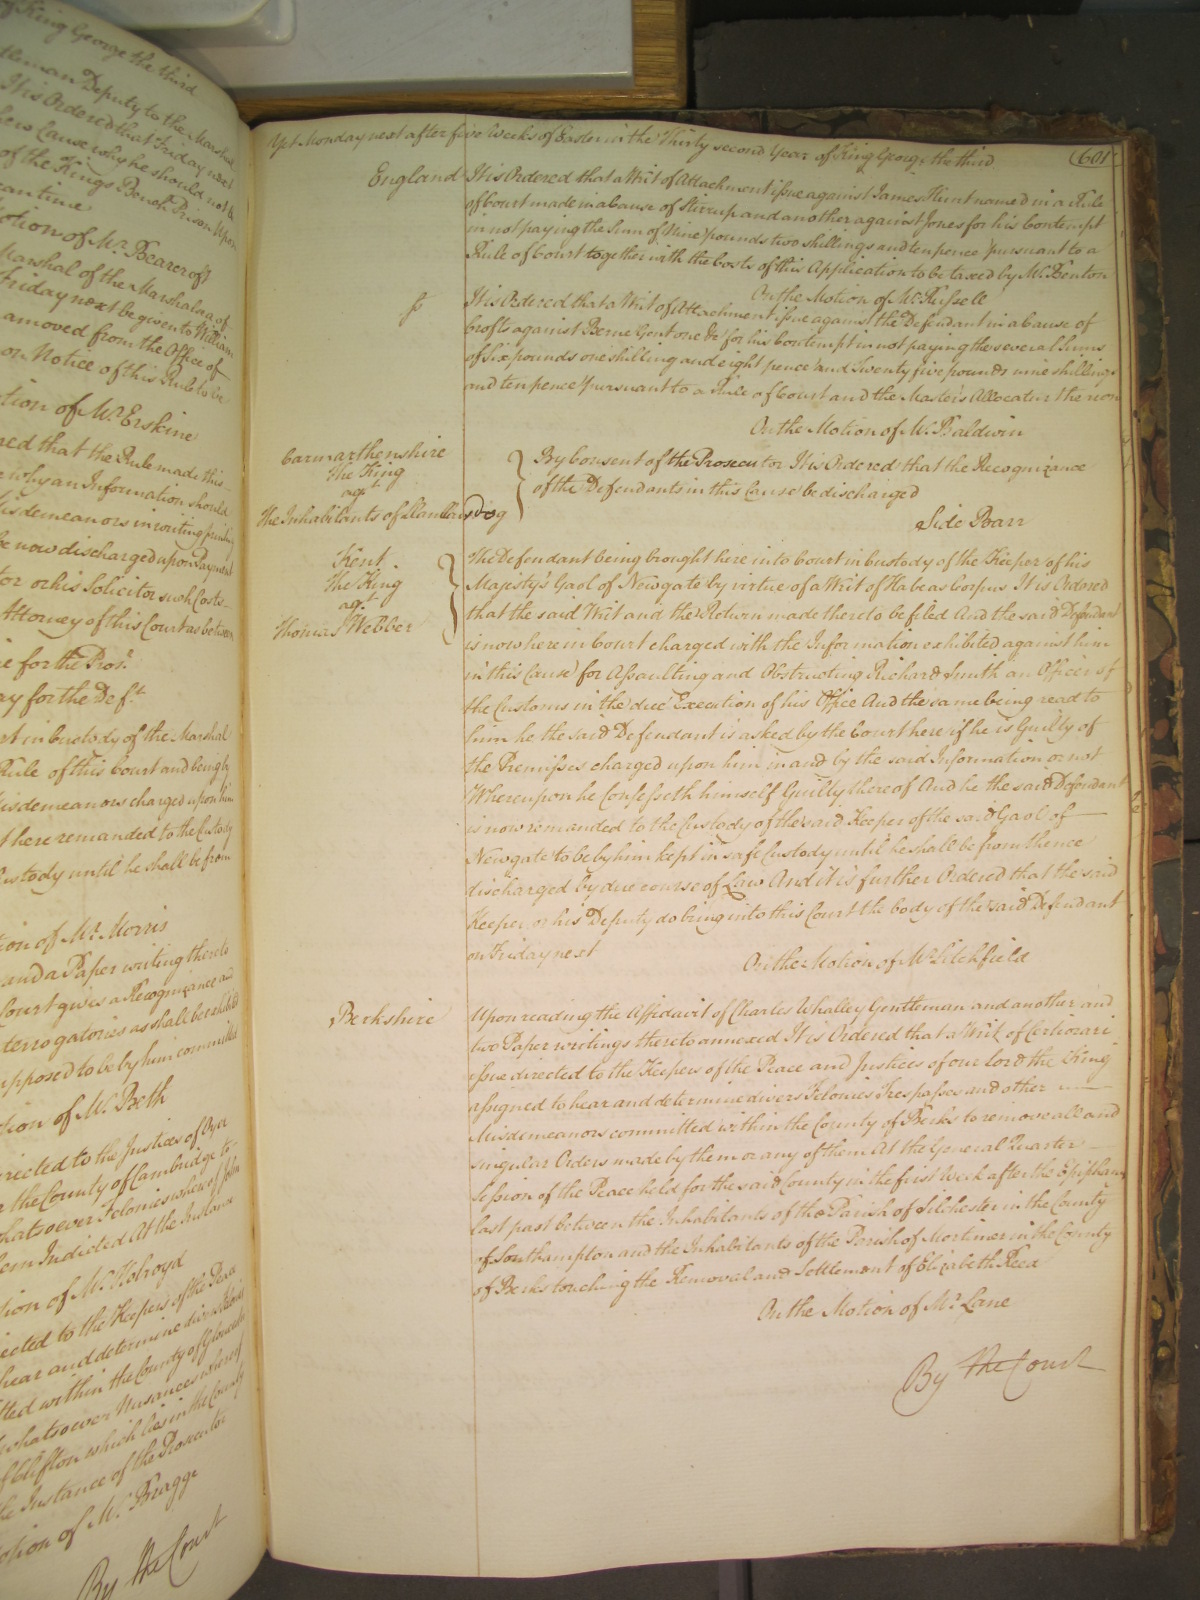 of King George the third
Gentleman Deputy to the Marshal
It is Ordered that Friday next
shew Cause why he should not be
of the Kings Bench Prison Upon
meantime
Motion of Mr. Bearcroft
Marshal of the Marshalsea of
Friday next be given to William
amoved from the Office of
on Notice of this Rule to be
tion of Mr. Erskine
red that the Rule made this
why an Information should
isdemeanors in writing printing
be now discharged upon Payment
tor or his Solicitor such Costs
Attorney of this Court as between
e for the Prosr.
ay for the Deft.
rt in Custody of the Marshal
Rule of this Court and being by
isdemeanors charged upon him
t here remanded to the Custody
Custody until he shall be from
tion of Mr. Morris
and a Paper writing thereto
Court gives a Recognizance and
terrogatories as shall be exhibited
upposed to be by him committed
tion of Mr. Beth
rected to the Justices of Oyer
the County of Cambridge to
hatsoever Felonies whereof John
em Indicted At the Instance
tion of Mr. Holroyd
rected to the Keepers of the Peace
hear and determine divers Felonies
tted within the County of Gloucester
whatsoever Nusances whereof
of Clifton which lies in the County
he Instance of the Prosecutor
otion of Mr. Bragge
By the Court
Yet Monday next after five Weeks of Easter in the Thirty second Year of King George the third (601
England It is Ordered that a Writ of Attachment issue against James Hunt named in a Rule
of Court made in a Cause of Stirrup and another against Jones for his Contempt
in not paying the Sum of Nine pounds two shillings and ten pence pursuant to a
Rule of Court together with the Costs of this Application to be taxed by Mr. Benton
On the Motion of Mr. Russell
It is Ordered that a Writ of Attachment issue against the Defendant in a Cause of
Crofts against Berne Gent one &c for his Contempt in not paying the several Sums
of Six pounds one shilling and eight pence and Twenty five pounds nine shillings
and ten pence pursuant to a Rule of Court and the Master's Allocatur thereon
On the Motion of Mr. Baldwin
Carmarthenshire
The King
agt.
The Inhabitants of
By Consent of the Prosecutor It is Ordered that the Recognizance
of the Defendants in this Cause be discharged
Side Barr
Kent
The King
agt.
Thomas Webber
The Defendant being brought here into Court in Custody of the Keeper of his
Majesty's Gaol of Newgate by virtue of a Writ of Habeas Corpus It is Ordered
that the said Writ and the Return made thereto be filed And the said Defendant
is now here in Court charged with the Information exhibited against him
in this Cause for Assaulting and Obstructing Richard Smith an Officer of
the Customs in the due Execution of his Office And the same being read to
him he the said Defendant is asked by the Court here if he is Guilty of
the Premisses charged upon him in and by the said Information or not
Whereupon he Confesseth himself Guilty thereof And he the said Defendant
is now remanded to the Custody of the said Keeper of the said Gaol of
Newgate to be by him kept in safe Custody until he shall be from thence
discharged by due course of Law And it is further Ordered that the said
Keeper or his Deputy do bring into this Court the body of the said Defendant
on Friday next
On the Motion of Mr. Litchfield
Berkshire Upon reading the Affidavit of Charles Whalley Gentleman and another and
two Paper writings thereto annexed It is Ordered that a Writ of Certiorari
issue directed to the Keepers of the Peace and Justices of our Lord the King
assigned to hear and determine divers Felonies Trespasses and other
Misdemeanors committed within the County of Berks to remove all and
singular Orders made by them or any of them At the General Quarter
Session of the Peace held for the said County in the first Week after the Epiphany
last past between the Inhabitants of the Parish of Silchester in the County
of Southampton and the Inhabitants of the Parish of Mortimer in the County
of Berks touching the Removal and Settlement of Elizabeth Reed
On the Motion of Mr. Lane
By the Court